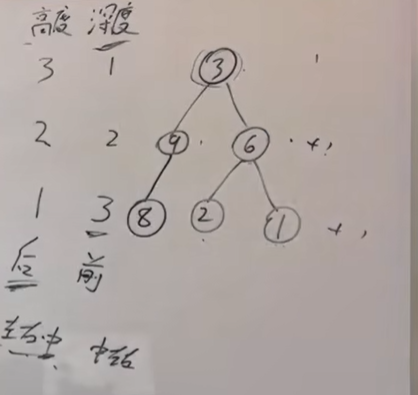 高度 深度
3 1 3
2 2 9 6 +1
1 3 8 2 1 +1
后 前
左右中 中左右